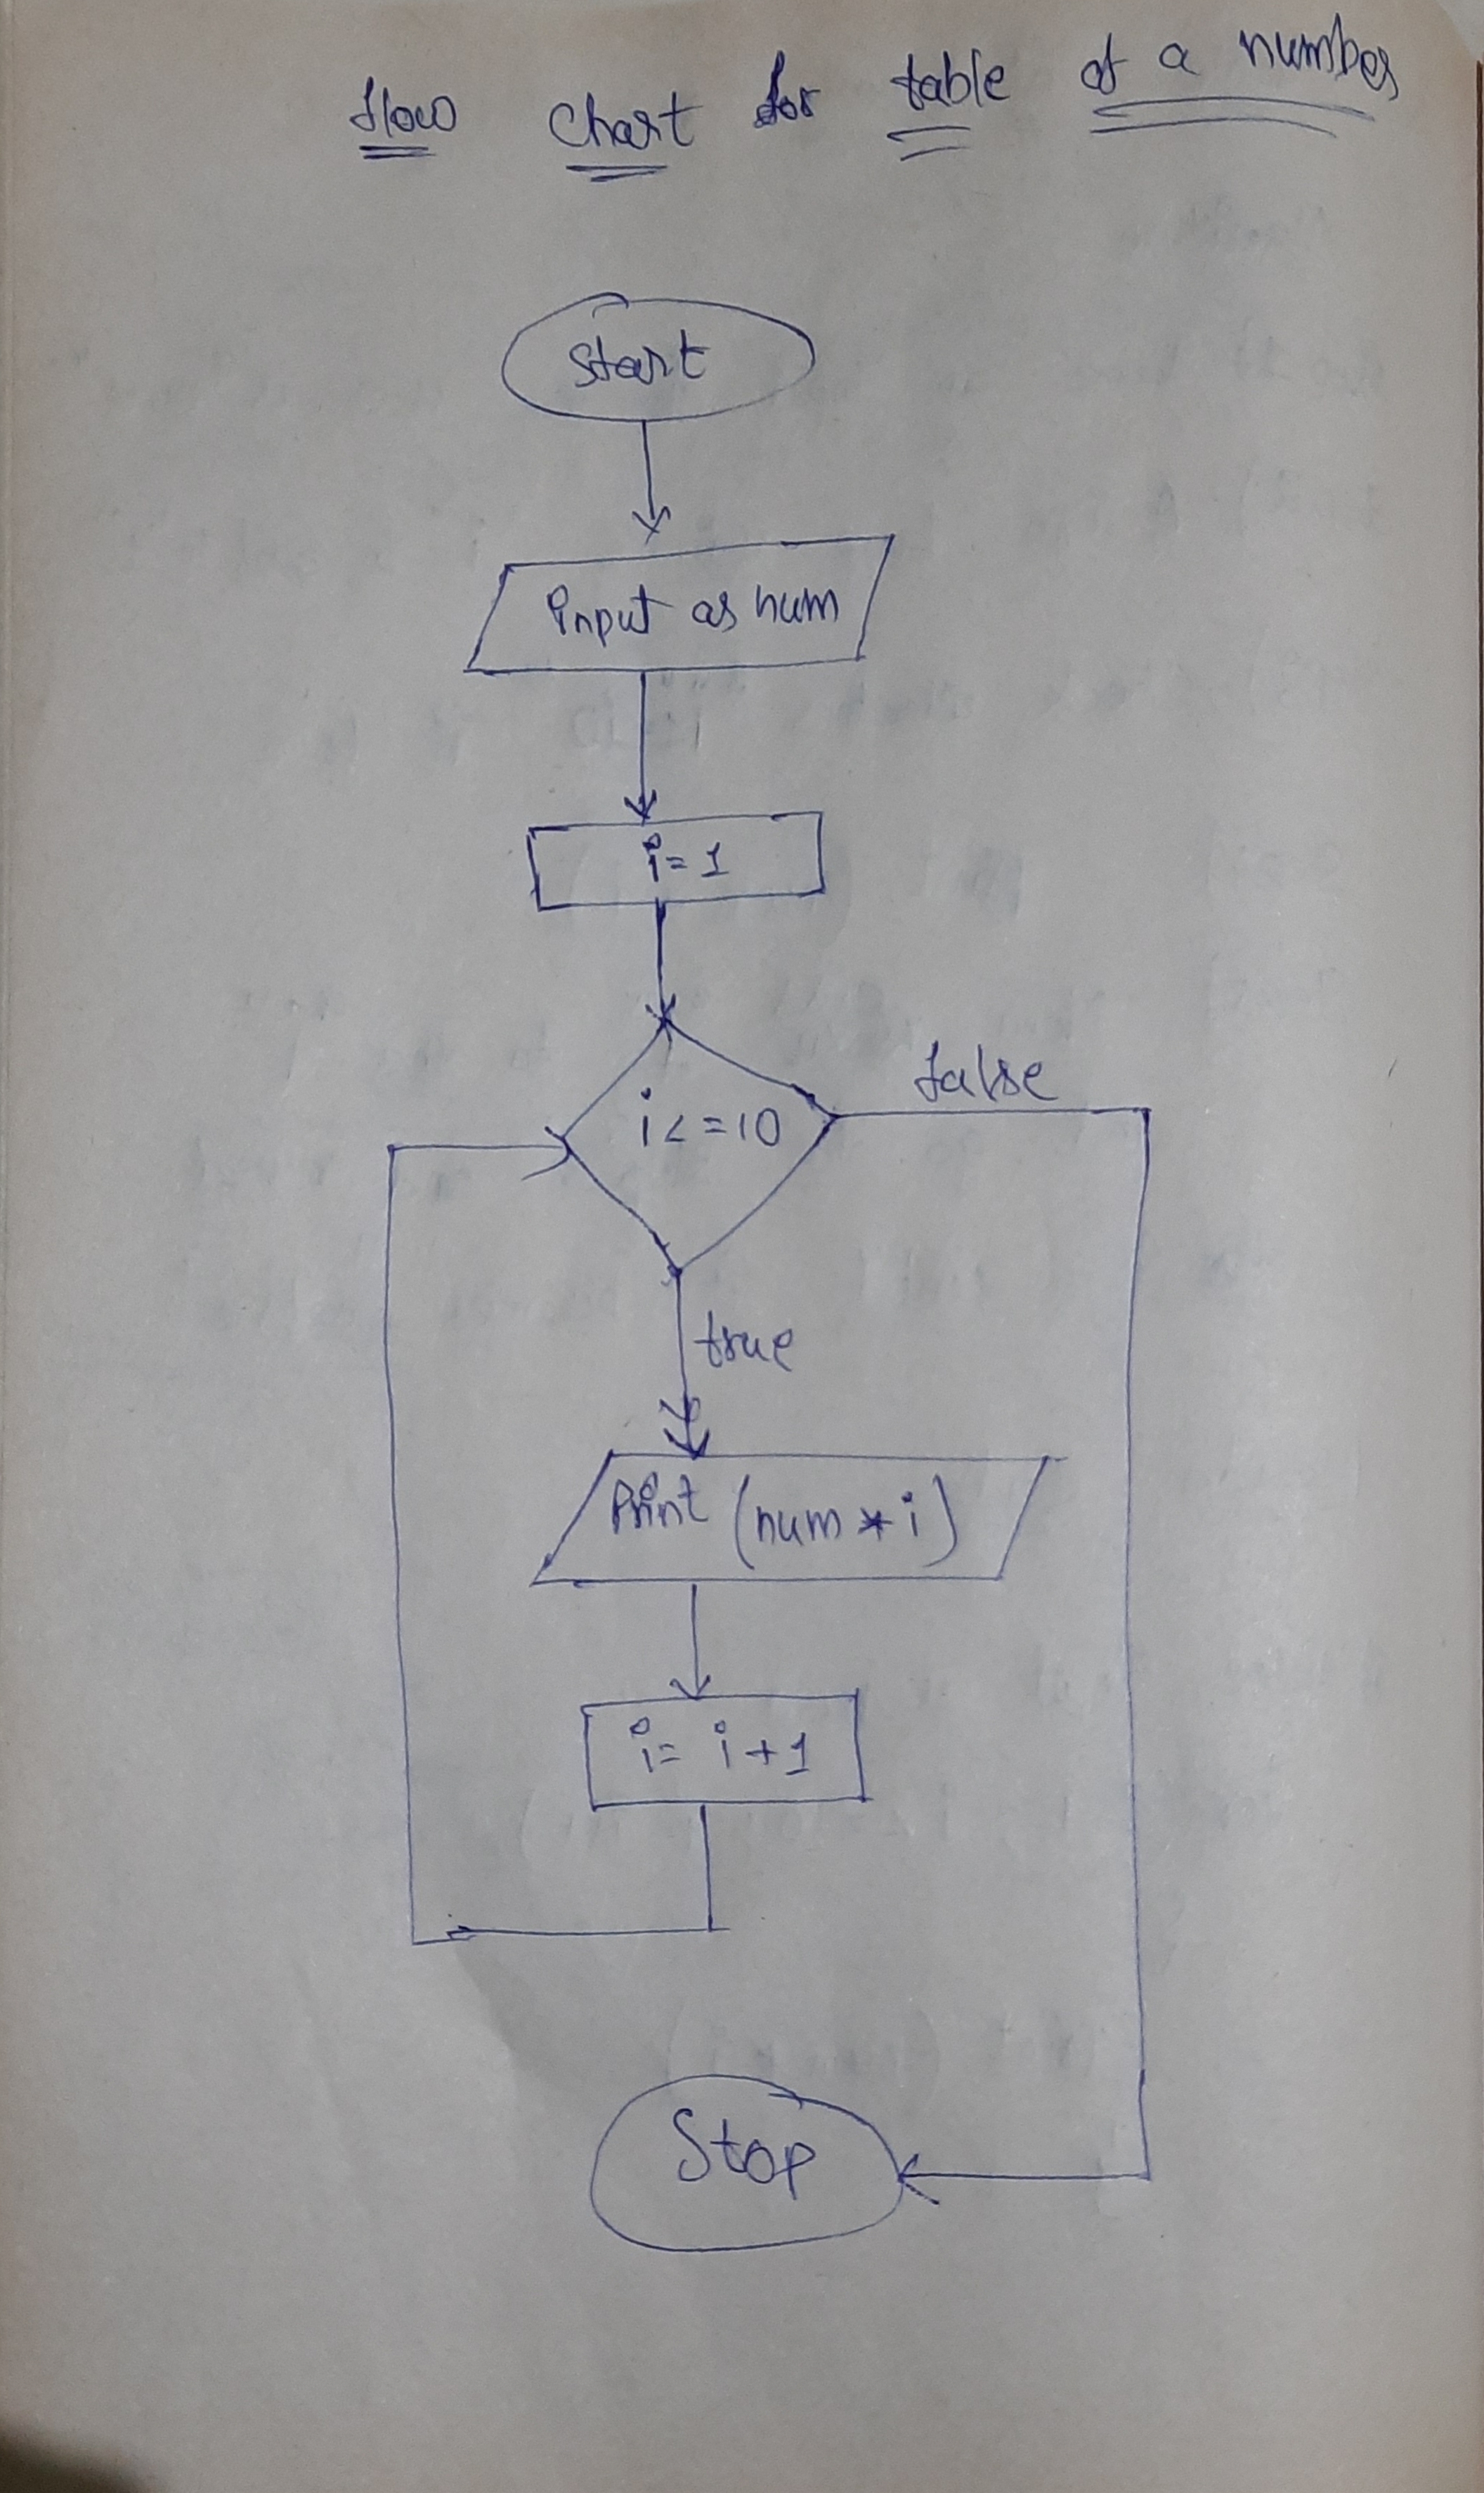 flow chart for table of a number
start
input as num
i = 1
i <= 10
false
true
Print (num * i)
i = i + 1
Stop